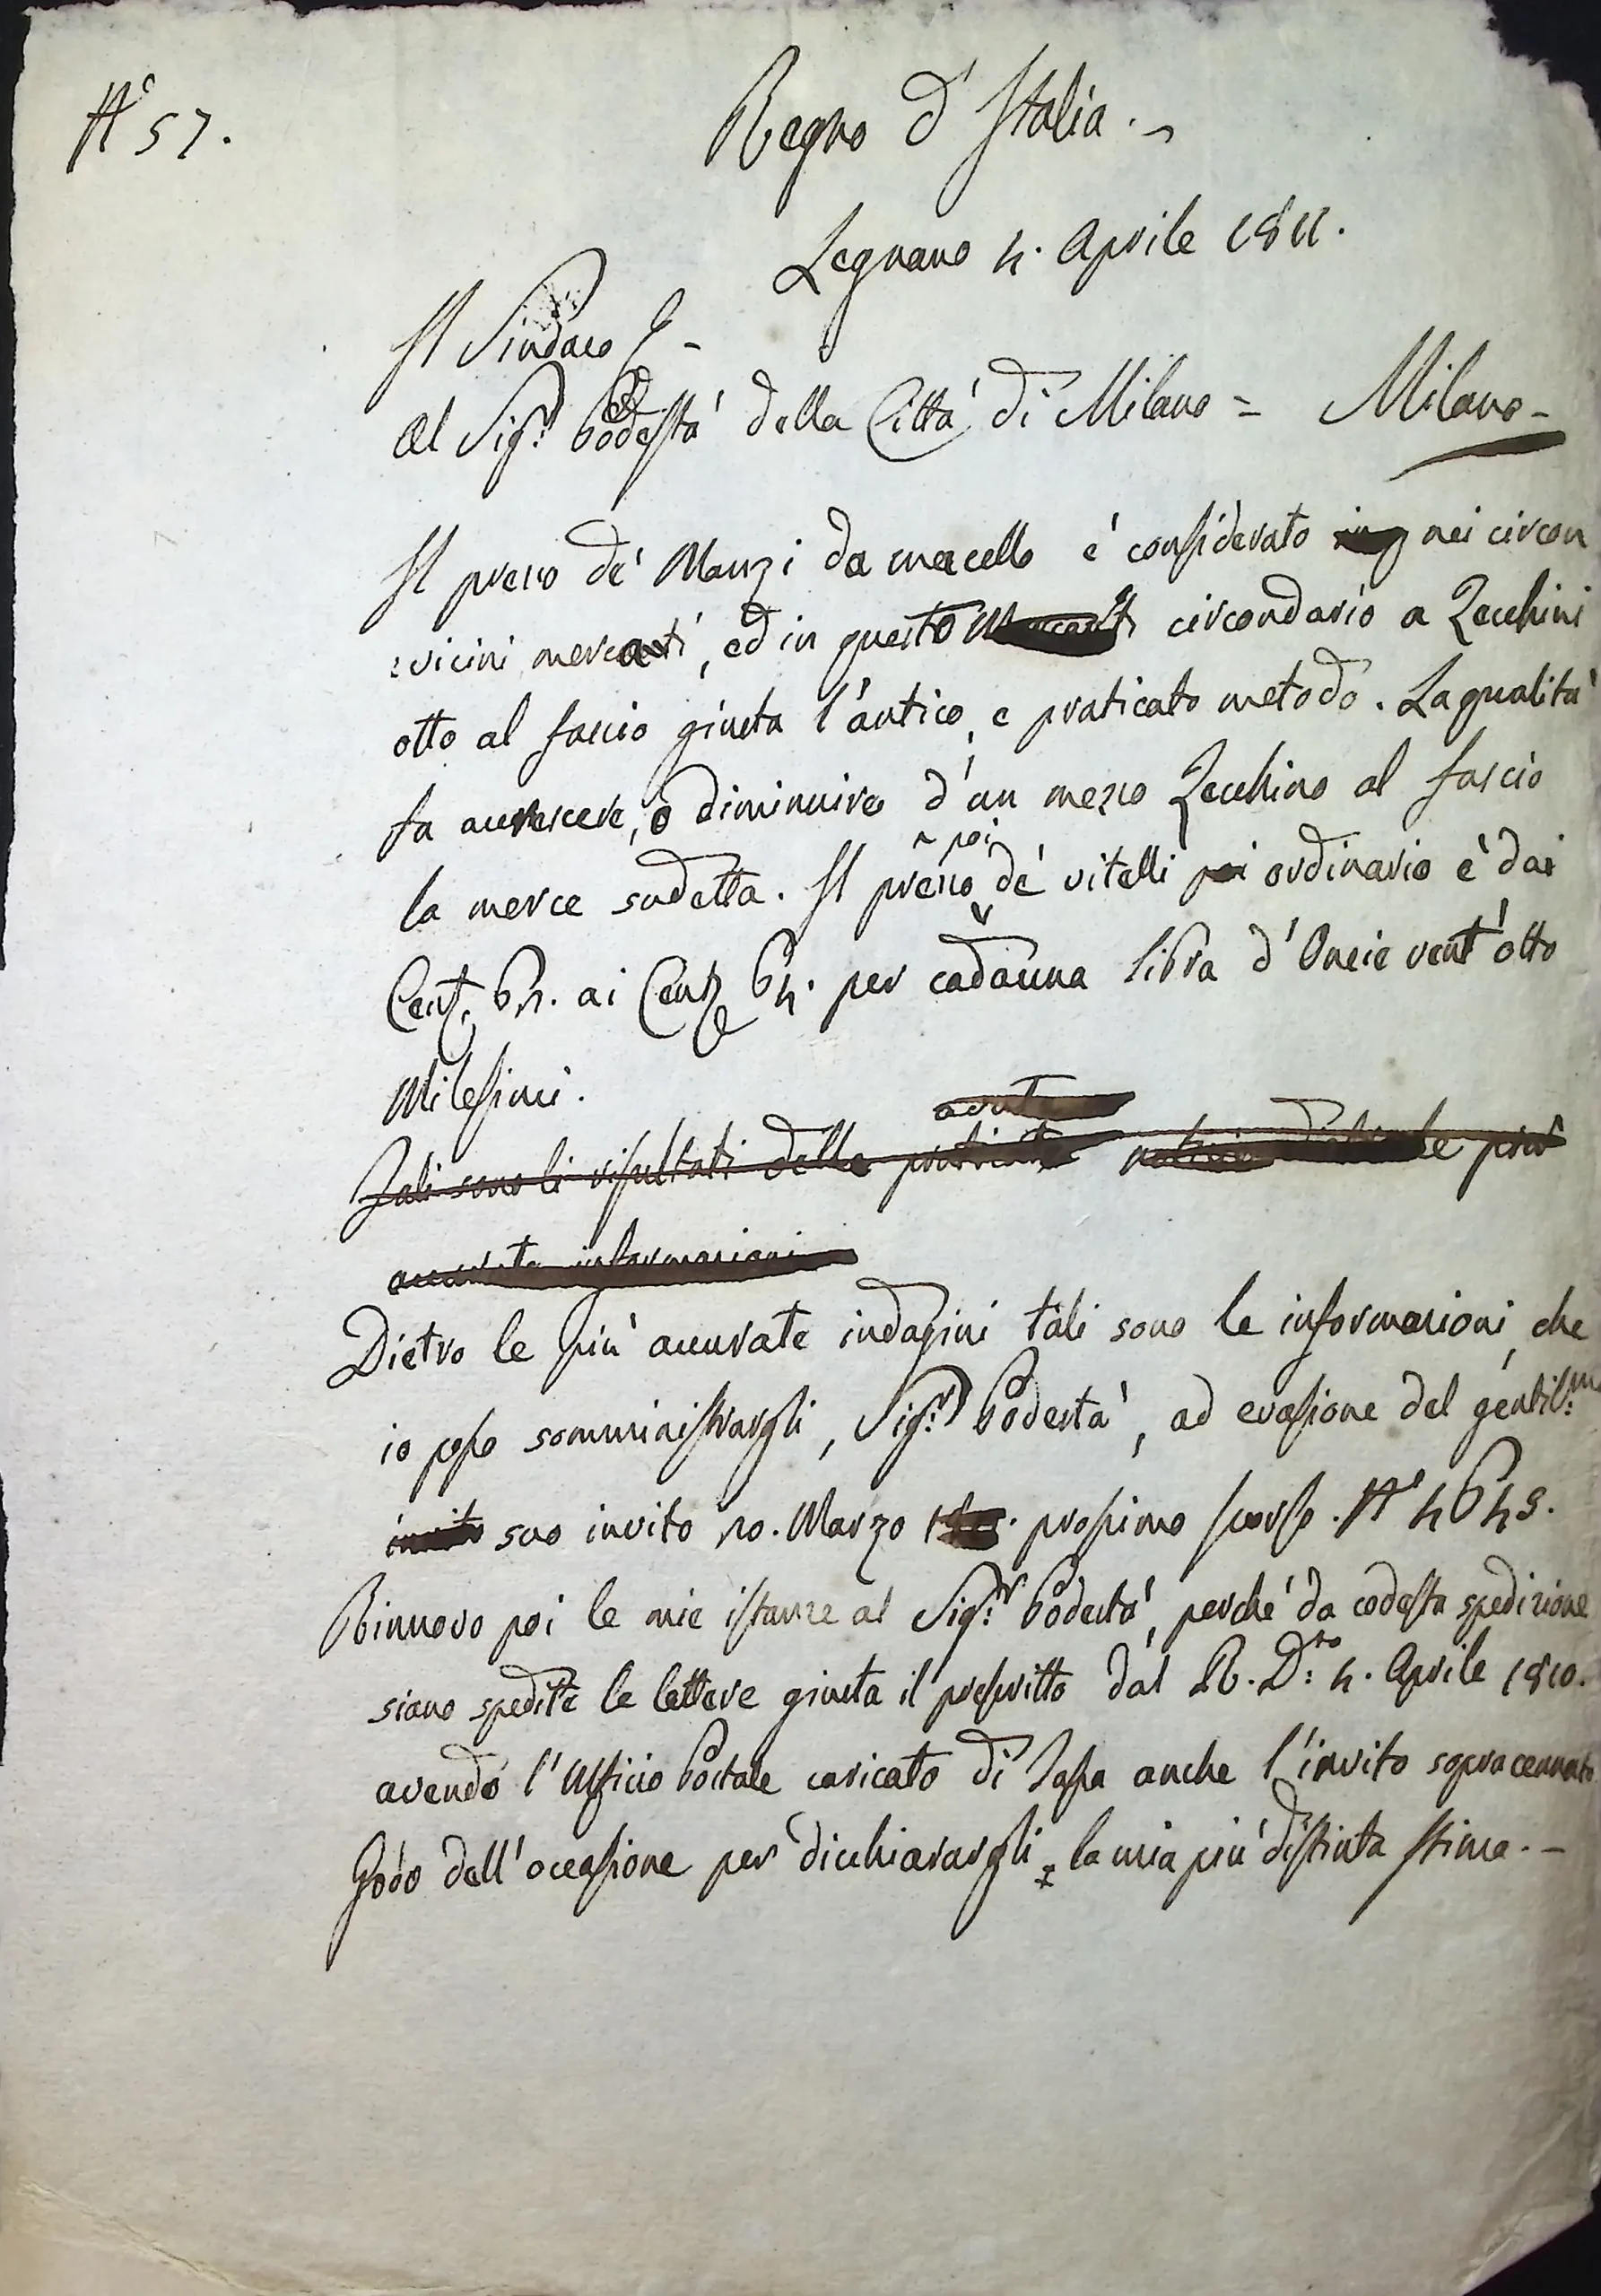 N° 57.
Regno d'Italia.
Legnano 4. Aprile 1811.
Il Sindaco
Al Sig.r Podestà della Città di Milano = Milano -
Il prezzo de' Manzi da macello è considerato nei circon
:vicini mercati, ed in questo circondario a Zecchini
otto al fascio giusta l'antico, e praticato metodo. La qualità
fa accrescere, o diminuire d'un mezzo Zecchino al fascio
la merce sudetta. Il prezzo poi de' vitelli poi ordinario è dai
Cent. ai Cent. 64. per cadauna libra d'Oncie vent'otto
Milesimi.
Tali sono li risultati delle più
accurate informazioni
Dietro le più accurate indagini tali sono le informazioni, che
io posso somministrargli, Sig.r Podestà, ad evasione del gentil.mo
invito suo invito 20. Marzo prossimo scorso. N° 4645.
Rinnovo poi le mie istanze al Sig.r Podestà, perché da codesta spedizione
siano spedite le lettere giusta il prescritto dal R. D.to 4. Aprile 1810.
avendo l'Ufficio Postale caricato di Tassa anche l'invito sopracennato
Godo dell'occasione per dicchiarargli la mia più distinta stima. -